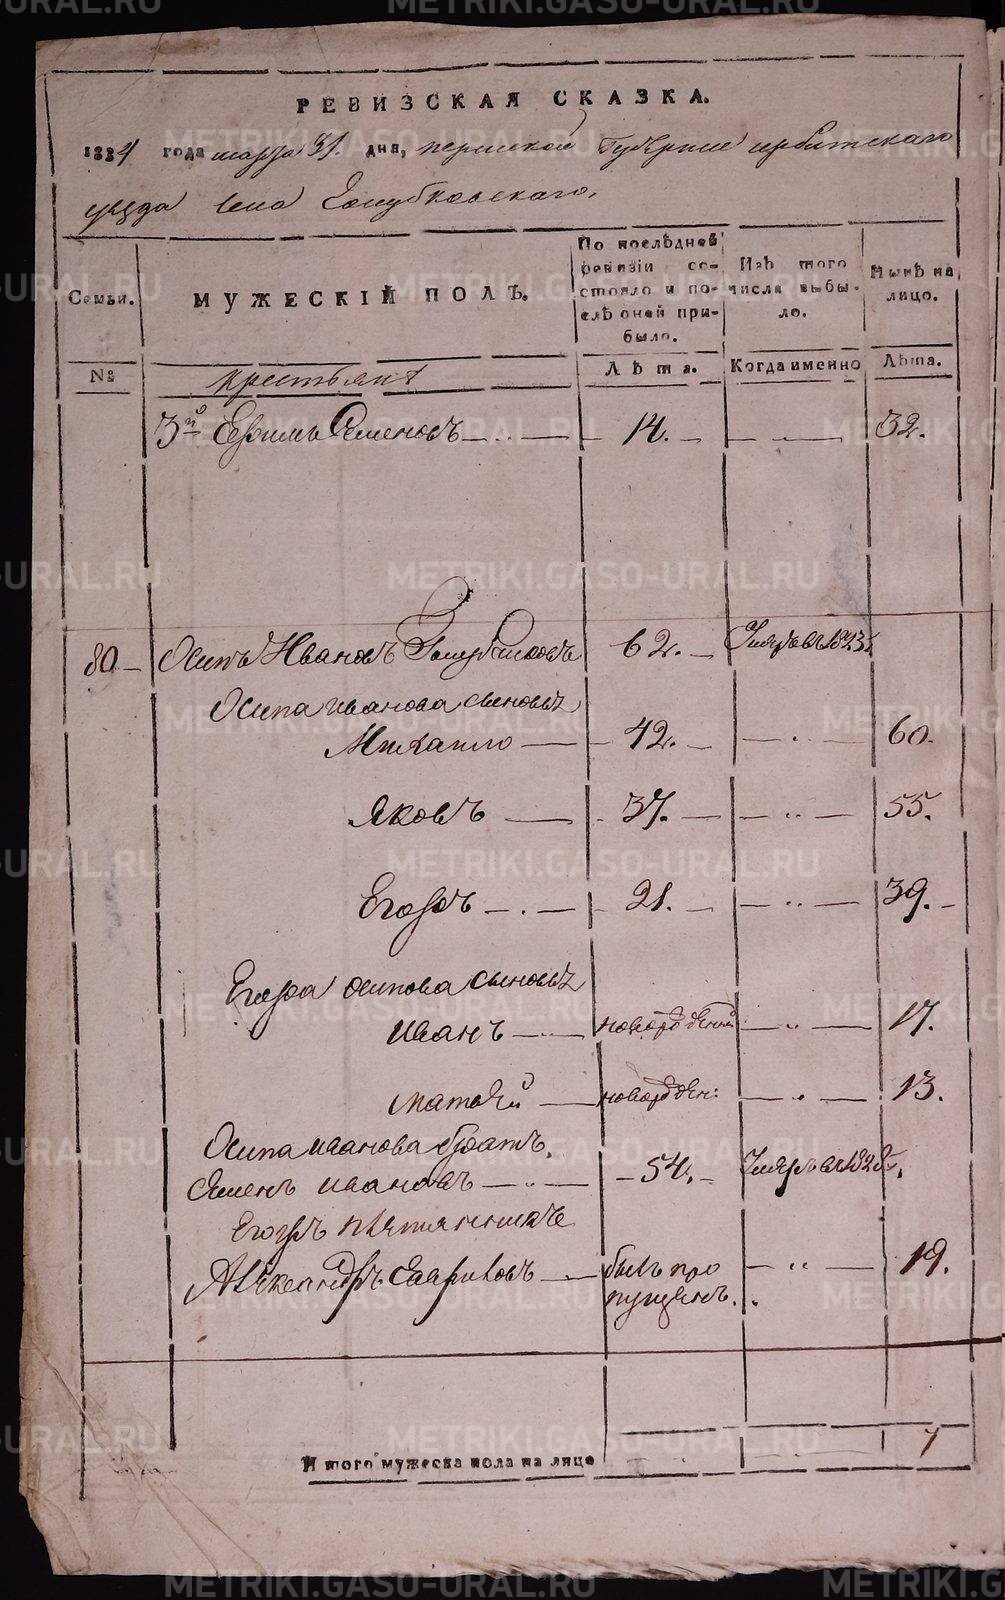 РЕВИЗСКАЯ СКАЗКА.
1834 года марта 31. дня, пермской Губернiи ирбитскаго
уезда села Голубковскаго,
Семьи.
МУЖЕСКIЙ ПОЛЪ.
По послѣдней ревизiи состояло и послѣ оней прибыло.
Изъ того числа выбыло.
Нынѣ на лицо.
№
крестьянъ
Лѣта.
Когда именно
Лѣта.
3й Ефимъ Семеновъ 14. 32.
80 Осипъ Ивановъ Голубчиковъ 62. Умръ въ 1823
Осипа иванова сыновья
Михаило 42. 60.
Яковъ 37. 55.
Егоръ 21. 39.
Егора осипова сыновья
иванъ новорожденный 17.
матвей новорожден: 13.
Осипа иванова братъ,
Семенъ ивановъ 54. Умръ въ 1828
Егоръ племянникъ
Александръ Гавриловъ былъ про 19.
пущенъ.
7
Итого мужеска пола на лицо
METRIKI.GASO-URAL.RU